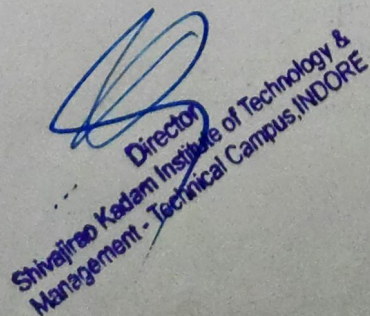 Director
Shivajirao Kadam Institute of Technology &
Management - Technical Campus, INDORE